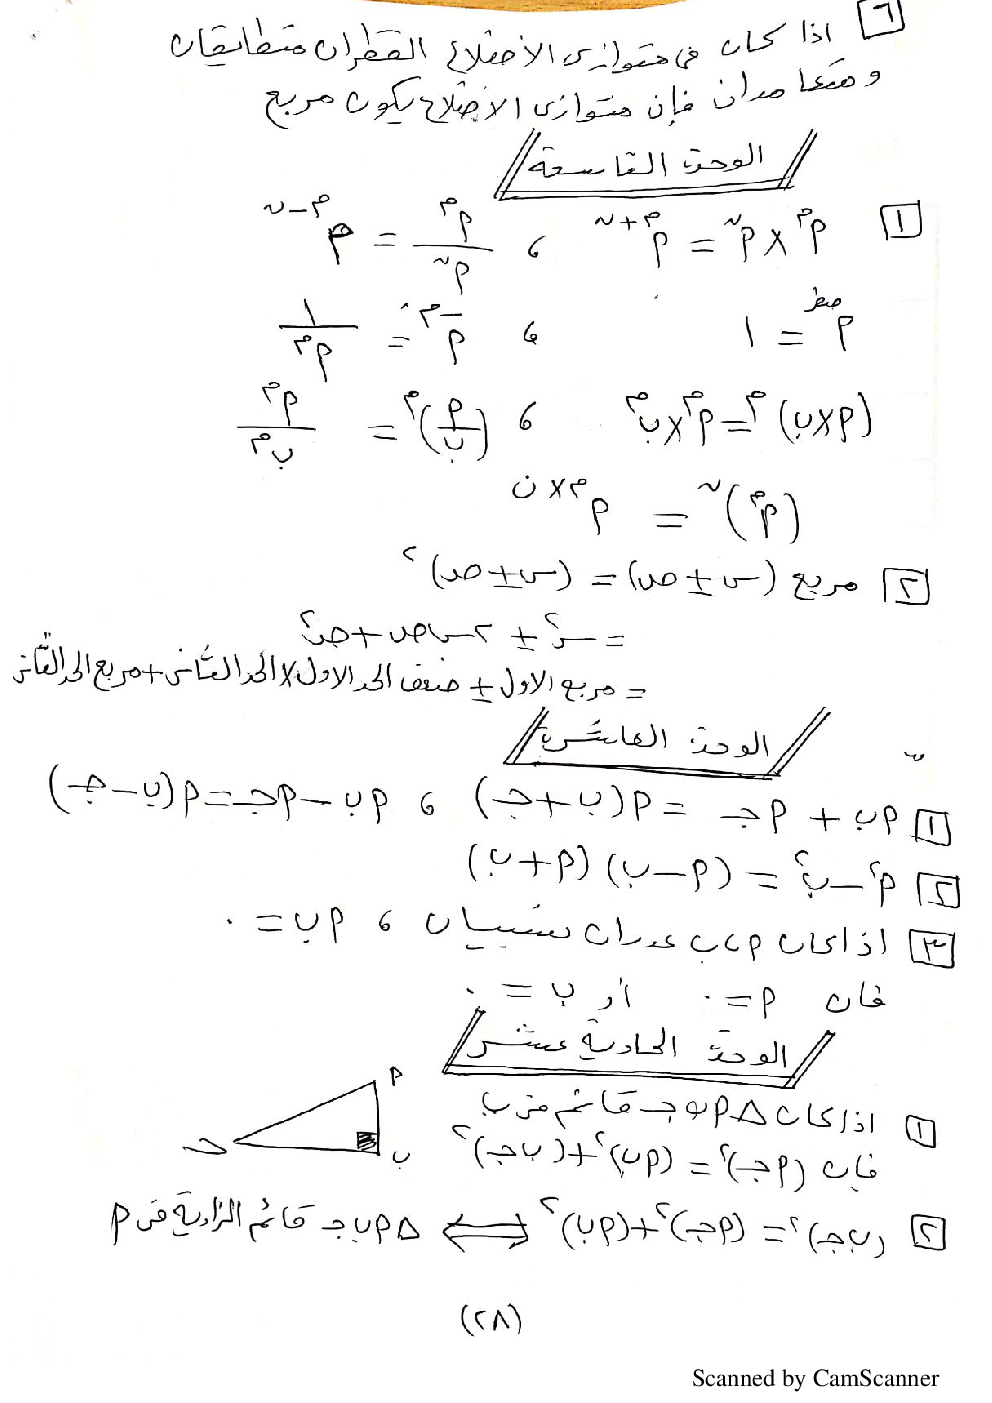 ٦ اذا كان فى متوازى الأضلاع القطران متطابقان
ومتعامدان فإن متوازى الأضلاع يكون مربع
الوحدة التاسعة
١ م^م × م^ن = م^(م+ن) ، م^م / م^ن = م^(م-ن)
م^صفر = ١ ، م^-م = ١ / م^م
(م×ب)^م = م^م × ب^م ، (م/ب)^م = م^م / ب^م
(م^م)^ن = م^(م×ن)
٢ مربع (س ± ص) = (س ± ص)^٢
= س^٢ ± ٢ س ص + ص^٢
= مربع الاول ± ضعف الحد الاول × الحد الثانى + مربع الحد الثانى
الوحدة العاشرة
١ م ب + م جـ = م (ب + جـ) ، م ب − م جـ = م (ب − جـ)
٢ م^٢ − ب^٢ = (م − ب) (م + ب)
٣ اذا كان م ، ب عددان نسبيان ، م ب = ٠
فان م = ٠ أو ب = ٠
الوحدة الحادية عشر
١ اذا كان △ م ب جـ قائم فى ب
فإن (م جـ)^٢ = (م ب)^٢ + (ب جـ)^٢
م
ب
جـ
٢ (ب جـ)^٢ = (م جـ)^٢ + (م ب)^٢ ⟺ △ م ب جـ قائم الزاوية فى م
(٢٨)
Scanned by CamScanner